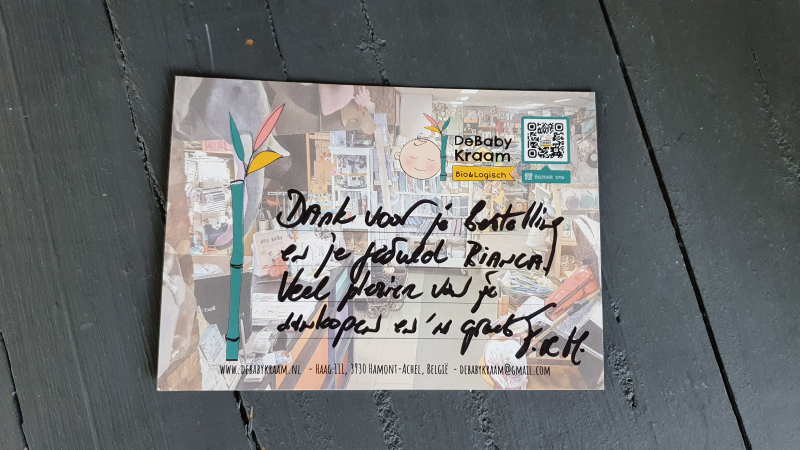 DeBaby
Kraam
Bio&Logisch
Bezoek ons
Dank voor je bestelling
en je geduld Bianca!
Veel plezier van je
aankopen en 'n groet
www.debabykraam.nl - Haag 111, 3930 Hamont-Achel, België - debabykraam@gmail.com